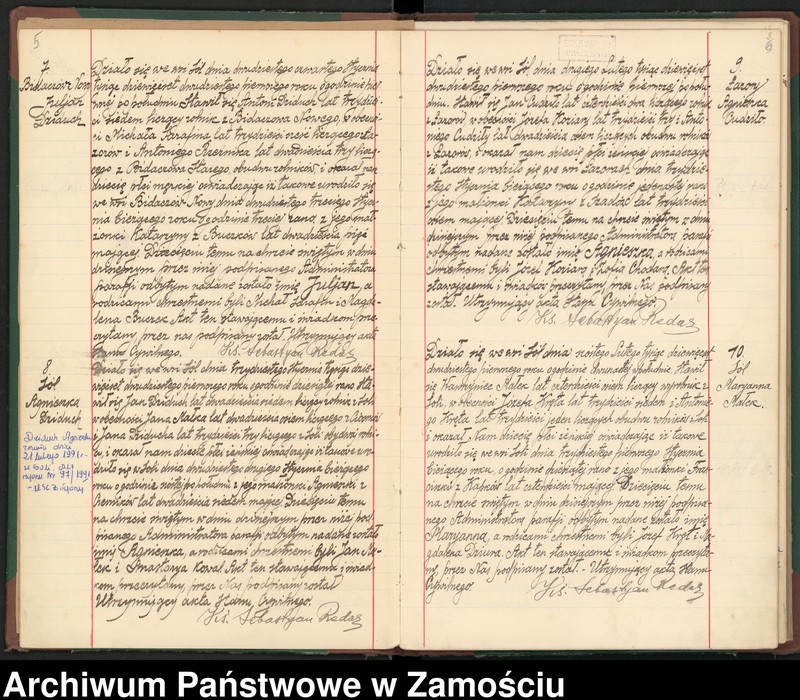 5
7.
Bidaczów Now
Juljan
Dziduch
Działo się we wsi Sól dnia dwudziestego czwartego Stycznia
tysiąc dziewięset dwudziestego pierwszego roku o godzinie
po południu. Stawił się Antoni Dziduch lat trzydzie-
ści siedem liczący rolnik z Bidaczowa Nowego, w obecno-
ści Michała Karafina lat trzydzieści liczącego z Ła-
zorów i Antoniego Rzeźnika lat dwadzieścia trzy liczą-
cego z Bidaczowa Starego obudwu rolników i okazał nam
dziecię płci męzkiej oświadczając iż takowe urodziło się
we wsi Bidaczów Nowy dnia dwudziestego trzeciego Stycz-
nia bieżącego roku o godzinie trzeciej rano, z jego mał-
żonki Katarzyny z Buczków lat dwadzieścia pięć
mającej. Dziecięciu temu na chrzcie świętym w dniu
dzisiejszym przez niżej podpisanego Administratora
parafji odbytym nadane zostało imię Juljan, a
rodzicami chrzestnemi byli Michał i Magda-
lena Buczek. Akt ten stawającemu i świadkom prze-
czytany, przez nas podpisany został. Utrzymujący akta
Stanu Cywilnego. Ks. Sebastyan Redas
8.
Sól
Agnieszka
Dziduch
Dziduch Agnieszka
zmarła dnia
21 lutego 1991 r.
w Soli, akt
zgonu Nr 97/1991
- USC Biłgoraj
Działo się we wsi Sól dnia trzydziestego Stycznia tysiąc dzie-
więset dwudziestego pierwszego roku o godzinie dziesiątej rano. Sta-
wił się Jan Dziduch lat dwadzieścia siedem liczący rolnik z Soli
w obecności Jana Małka lat dwadzieścia osiem liczącego i
Jana Dziducha lat trzydzieści trzy liczącego z Soli obydwu rolni-
ków, i okazał nam dziecię płci żeńskiej oświadczając iż takowe uro-
dziło się w Soli dnia dwudziestego drugiego Stycznia bieżącego
roku o godzinie szóstej po południu z jego małżonki Agnieszki z
lat dwadzieścia siedem mającej. Dziecięciu temu
na chrzcie świętym w dniu dzisiejszym przez niżej pod-
pisanego Administratora parafji odbytym nadane zostało
imię Agnieszka, a rodzicami chrzestnemi byli Jan Ma-
łek i Anastazya Kowal. Akt ten stawającemu i świad-
kom przeczytany, przez Nas podpisany został.
Utrzymujący akta Stanu Cywilnego.
Ks. Sebastyan Redas
6
9.
Łazory
Agnieszka
Cudziło
Działo się we wsi Sól, dnia drugiego Lutego tysiąc dziewięset
dwudziestego pierwszego roku o godzinie pierwszej po połu-
dniu. Stawił się Jan Cudziło lat czterdzieści dwa liczący rolnik
z Łazorów w obecności Józefa Koziarz lat trzydzieści trzy i Anto-
niego Cudziły lat dwadzieścia osiem liczących obudwu rolników
z Łazorów, i okazał nam dziecię płci żeńskiej oświadczając
iż takowe urodziło się we wsi Łazorach, dnia trzydzie-
stego Stycznia bieżącego roku o godzinie jedenastej rano
z jego małżonki Katarzyny z lat trzydzieści
osiem mającej. Dziecięciu temu na chrzcie świętym w dniu
dzisiejszym przez niżej podpisanego Administratora parafji
odbytym nadane zostało imię Agnieszka, a rodzicami
chrzestnemi byli Józef Koziarz i Zofia Chodara. Akt ten
stawającemu i świadkom przeczytany, przez Nas podpisany
został. Utrzymujący akta Stanu Cywilnego.
Ks. Sebastyan Redas
10.
Sól
Maryanna
Małek.
Działo się we wsi Sól dnia szóstego Lutego tysiąc dziewięset
dwudziestego pierwszego roku o godzinie dwunastej w południe. Stawił
się Wawrzyniec Małek lat czterdzieści liczący wyrobnik z
Soli, w obecności Józefa Kręta lat trzydzieści siedem i Antonie-
go Kręta lat trzydzieści jeden liczących obudwu rolników z Soli
i okazał Nam dziecię płci żeńskiej oświadczając iż takowe
urodziło się we wsi Soli dnia trzydziestego pierwszego Stycznia
bieżącego roku, o godzinie dziesiątej rano z jego małżonki Fran-
ciszki z Kapków lat czterdzieści mającej. Dziecięciu temu
na chrzcie świętym w dniu dzisiejszym przez niżej podpisa-
nego Administratora parafji odbytym nadane zostało imię
Maryanna, a rodzicami chrzestnemi byli Józef Kręt i Ma-
gdalena Dziura. Akt ten stawającemu i świadkom przeczyta-
ny, przez Nas podpisany został. - Utrzymujący akta Stanu
Cywilnego. Ks. Sebastyan Redas
Archiwum Państwowe w Zamościu